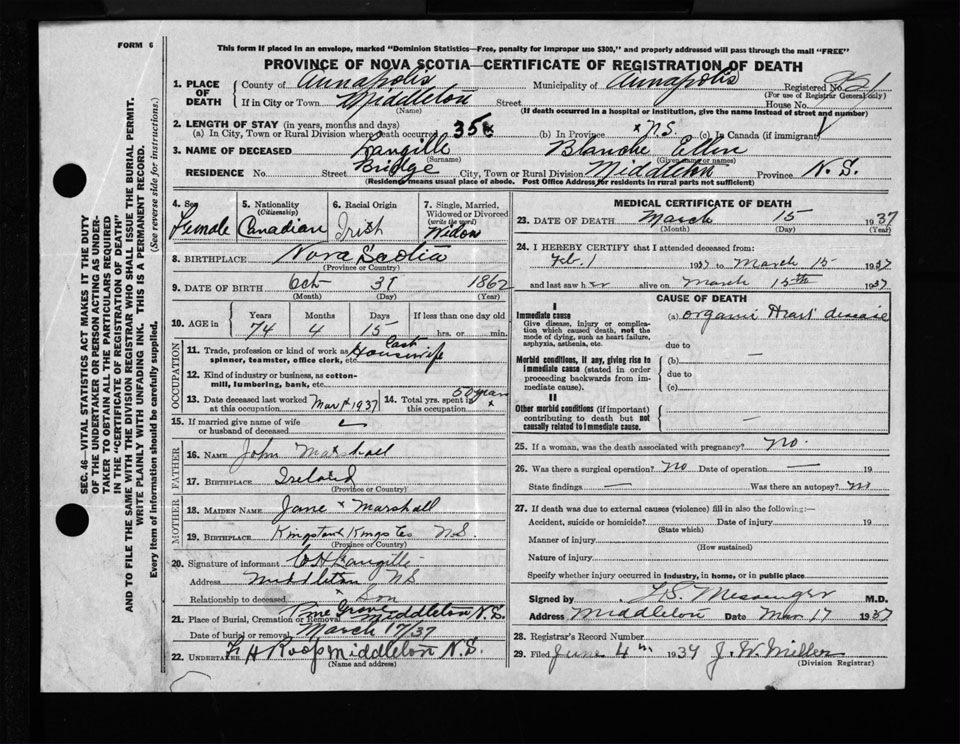 FORM 6
This form if placed in an envelope, marked "Dominion Statistics—Free, penalty for improper use $300," and properly addressed will pass through the mail "FREE"
PROVINCE OF NOVA SCOTIA—CERTIFICATE OF REGISTRATION OF DEATH
1. PLACE OF DEATH
County of Annapolis Municipality of Annapolis Registered No.
(For use of Registrar General only)
If in City or Town Middleton Street House No.
(Name) (If death occurred in a hospital or institution, give the name instead of street and number)
2. LENGTH OF STAY (in years, months and days)
(a) In City, Town or Rural Division where death occurred 35 (b) In Province N.S. (c) In Canada (if immigrant)
3. NAME OF DECEASED Langille Blanche Ellen
(Surname) (Given name or names)
RESIDENCE No. Street Bridge City, Town or Rural Division Middleton Province N.S.
(Residence means usual place of abode. Post Office Address for residents in rural parts not sufficient)
4. Sex Female
5. Nationality (Citizenship) Canadian
6. Racial Origin Irish
7. Single, Married, Widowed or Divorced (write the word) Widow
8. BIRTHPLACE Nova Scotia
(Province or Country)
9. DATE OF BIRTH Oct 31 1862
(Month) (Day) (Year)
10. AGE in Years Months Days If less than one day old
74 4 15 hrs. or min.
OCCUPATION
11. Trade, profession or kind of work as spinner, teamster, office clerk, etc. Housewife
12. Kind of industry or business, as cotton-mill, lumbering, bank, etc.
13. Date deceased last worked at this occupation Mar 1937
14. Total yrs. spent in this occupation 50 years
15. If married give name of wife or husband of deceased
FATHER
16. NAME John Marshall
17. BIRTHPLACE Ireland
(Province or Country)
MOTHER
18. MAIDEN NAME Jane Marshall
19. BIRTHPLACE Kingston Kings Co N.S.
(Province or Country)
20. Signature of informant C H Langille
Address Middleton NS
Relationship to deceased Son
21. Place of Burial, Cremation or Removal Pine Grove Middleton N.S.
Date of burial or removal March 17/37
22. UNDERTAKER H Roop Middleton N.S.
(Name and address)
MEDICAL CERTIFICATE OF DEATH
23. DATE OF DEATH March 15 1937
(Month) (Day) (Year)
24. I HEREBY CERTIFY that I attended deceased from:
Feb. 1 1937 to March 15 1937
and last saw her alive on March 15th 1937
CAUSE OF DEATH
I
Immediate cause (a) organic Heart disease
Give disease, injury or complication which caused death, not the mode of dying, such as heart failure, asphyxia, asthenia, etc.
due to
Morbid conditions, if any, giving rise to immediate cause (stated in order proceeding backwards from immediate cause).
(b) —
due to
(c)
II
Other morbid conditions (if important) contributing to death but not causally related to immediate cause. —
25. If a woman, was the death associated with pregnancy? no.
26. Was there a surgical operation? No Date of operation — 19
State findings — Was there an autopsy? No
27. If death was due to external causes (violence) fill in also the following:—
Accident, suicide or homicide? Date of injury 19
(State which)
Manner of injury
(How sustained)
Nature of injury
Specify whether injury occurred in industry, in home, or in public place
Signed by Messenger M.D.
Address Middleton Date Mar 17 1937
28. Registrar's Record Number
29. Filed June 4th 1937 J. W. Miller
(Division Registrar)
SEC. 46—VITAL STATISTICS ACT MAKES IT THE DUTY
OF THE UNDERTAKER OR PERSON ACTING AS UNDER-
TAKER TO OBTAIN ALL THE PARTICULARS REQUIRED
IN THE "CERTIFICATE OF REGISTRATION OF DEATH"
AND TO FILE THE SAME WITH THE DIVISION REGISTRAR WHO SHALL ISSUE THE BURIAL PERMIT.
WRITE PLAINLY WITH UNFADING INK. THIS IS A PERMANENT RECORD.
Every item of information should be carefully supplied. (See reverse side for instructions.)